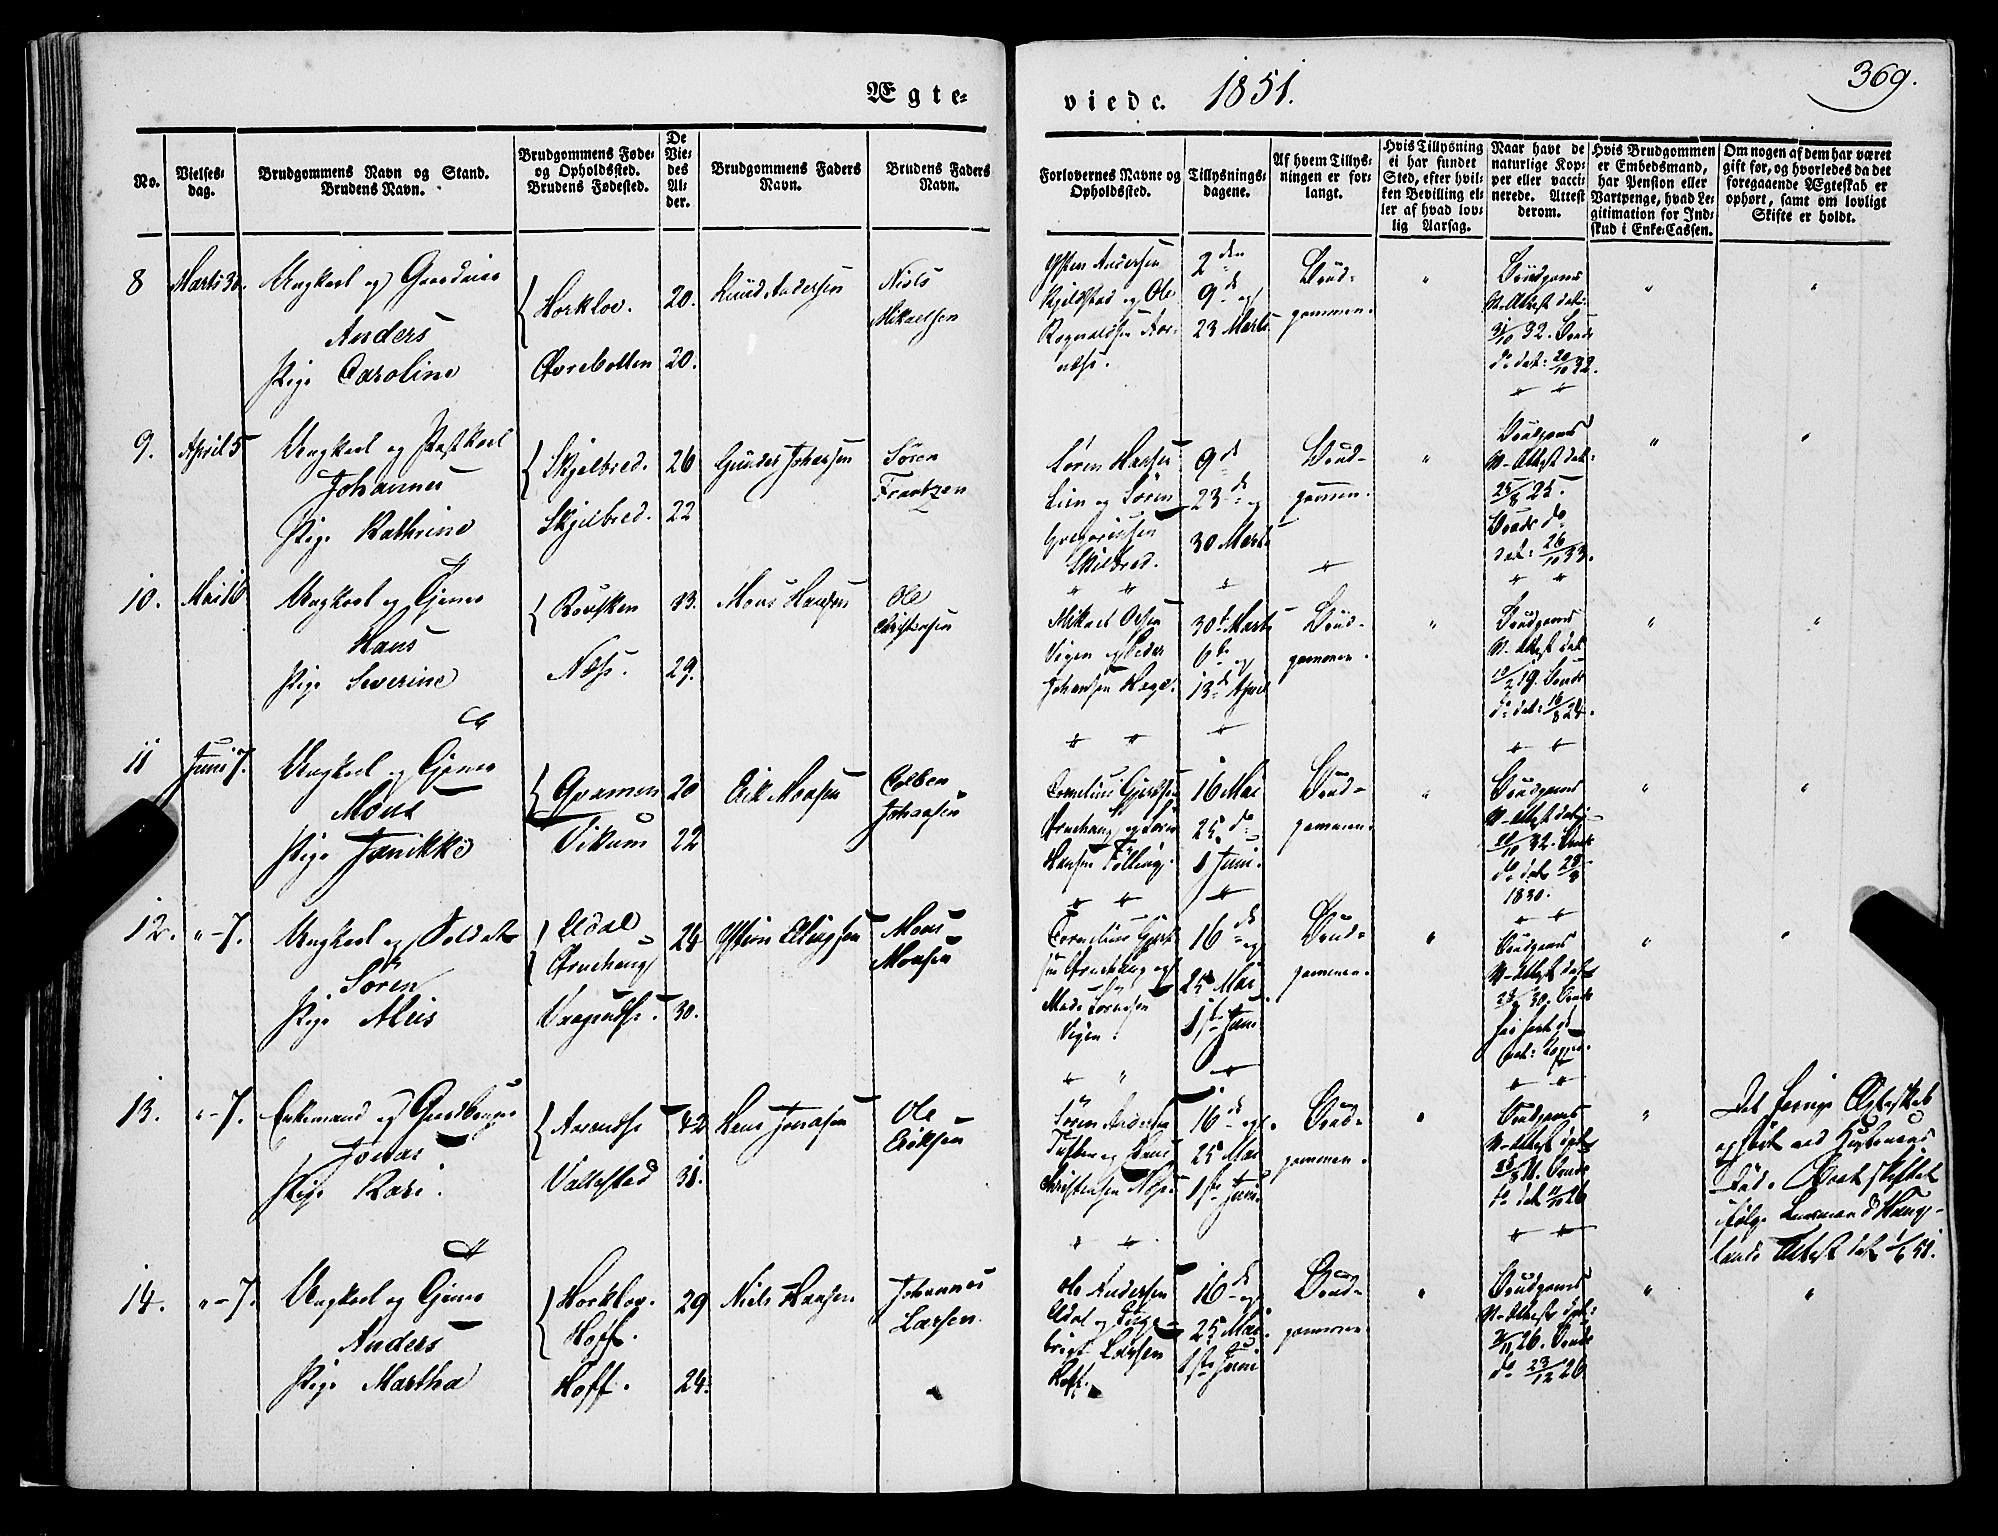 Ægte-
viede. 1851.
369.
No.
Vielses-
dag.
Brudgommens Navn og Stand.
Brudens Navn.
Brudgommens Føde-
og Opholdssted.
Brudens Fødested.
De
Vie-
des
Al-
der.
Brudgommens Faders
Navn.
Brudens Faders
Navn.
Forlovernes Navne og
Opholdssted.
Tillysnings-
dagene.
Af hvem Tillys-
ningen er for-
langt.
Hvis Tillysning
ei har fundet
Sted, efter hvil-
ken Bevilling el-
ler af hvad lov-
lig Aarsag.
Naar havt de
naturlige Kop-
per eller vacci-
nerede. Attest
derom.
Hvis Brudgommen
er Embedsmand,
har Pension eller
Vartpenge, hvad Le-
gitimation for Ind-
skud i Enke-Cassen.
Om nogen af dem har været
gift før, og hvorledes da det
foregaaende Ægteskab er
ophørt, samt om lovligt
Skifte er holdt.
8 Marts 30. Ungkarl og Gaardmand
Anders
Pige Caroline
Horklov. 20.
Øvrebotten 20.
Knud Andersen
Niels
Mikaelsen
Østen Andersen
Kjelstad og Ole
Rognaldsen
2den
9de og
23 Marts
Brud-
gommen.
Brudgoms
V-Attest dat:
31/10 32. Bruds
do dat: 20/10 32.
9. April 5 Ungkarl og
Johannes
Pige Kathrine
Skjelbred. 26
Skjelbred. 22
Gunder Johansen
Søren
Frantzen
Søren Hansen
Lien og Søren
Gregoriussen
Skilbred.
9de
23de og
30 Marts
Brud-
gommen.
Brudgoms
V-Attest dat:
25/8 25.
Bruds do
dat: 26/10 33.
10. Ungkarl og Tjener
Hans
Pige Severine
Rousken 33.
Næss. 29.
Mons Hansen
Ole
Christensen
Mikael Olsen
Vigen og Peder
Johansen Hage.
30te Marts
6te og
13de April
Brud-
gommen.
Brudgoms
V-Attest dat
19. Bruds
do dat: 16/8 24.
11 Juni 7. Ungkarl og Tjener
Mons
Pige Janikke
Gramen 20
Vikum 22
Erik Monsen
Colben
Johansen
Cornelius Gjertsen
og Søren
Hansen Tølling.
16 Mai
25. do
1 Juni.
Brud-
gommen.
Brudgoms
V-Attest dat:
10/10 32. Bruds
do dat 28/8
1830.
12. "-7. Ungkarl og Soldat
Søren
Pige Alis
Aldal 24
30.
Østen Ellingsen
Mons
Monsen
Cornelius Gjert-
sen og
Mads Sørensen
Vigen.
16de og
25 Mai
1ste Juni.
Brud-
gommen.
Brudgoms
V-Attest dat
30. Bruds
13. "-7. Enkemand og Gaardbruger
Jonas
Pige Kari.
42
Vallestad 31.
Hans Jonasen
Ole
Eriksen
Søren Andersen
Tuften og Hans
Christensen Næss
16de og
25 Mai
1ste Juni.
Brud-
gommen.
Brudgoms
V-Attest dat
Bruds
do dat 11/11 26
Det forrige Ægteskab
ophørt ved Hustruens
Død. Boet skiftet
ifølge Lensmand Haug-
lands Attest dat 1/6 51.
14. "-7. Ungkarl og Tjener
Anders
Pige Martha
Horklov. 29
Hoff.
Hoff. 24.
Niels Hansen
Johannes
Larsen.
Ole Andersen
Aldal og Inge-
brigt Larsen
Hoff.
16de og
25 Mai.
1ste Juni
Brud-
gommen.
Brudgoms
V-Attest dat:
26. Bruds
do 23/12 26